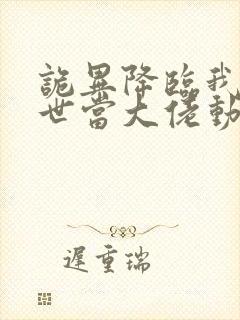 詭異降臨我
世當大佬動
遲重瑞